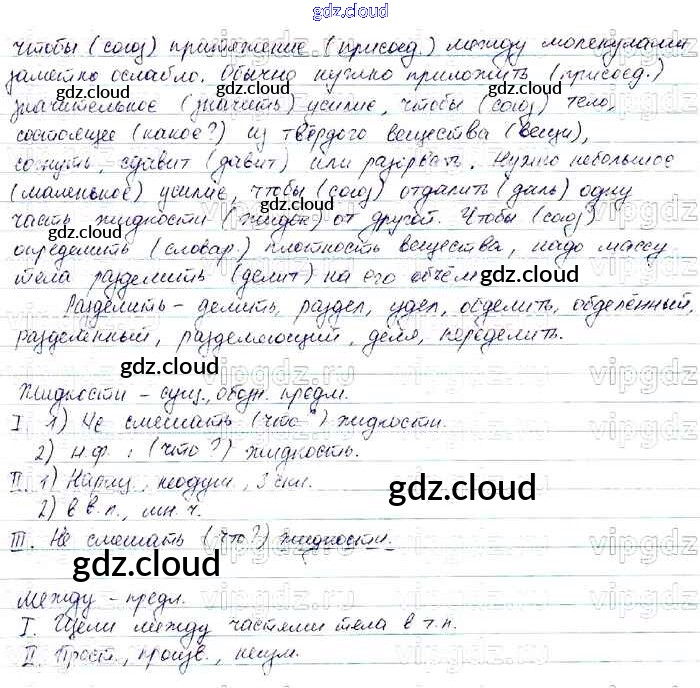 gdz.cloud
чтобы (союз) притяжение (присоед.) между молекулами
заметно ослабло. Обычно нужно приложить (присоед.)
значительное (значить) усилие, чтобы (союз) тело,
состоящее (какое?) из твёрдого вещества (вещи),
сжать, сдавит (давит) или разорвать. Нужно небольшое
(маленькое) усилие, чтобы (союз) отдалить (даль) одну
часть жидкости (жидок) от другой. Чтобы (союз)
определить (словар) плотность вещества, надо массу
тела разделить (делит) на его объём.
Разделить - делить, раздел, удел, обделить, обделённый,
разделённый, разделяющий, деля, переделить.
Жидкости - сущ., обозн. предм.
I 1) Не смешать (что?) жидкости.
2) н.ф.: (что?) жидкость.
II. 1) Нариц., неодуш., 3 скл.
2) в в.п., мн. ч.
III. Не смешать (что?) жидкости.
между - предл.
I. Щели между частями тела в т.п.
II. Прост., произв., неизм.